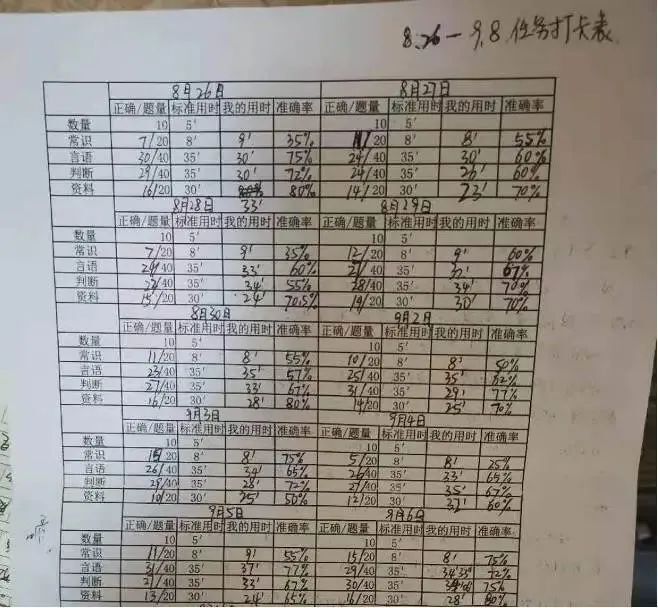 8.26-9.8 任务打卡表
8月26日 8月27日
正确/题量 标准用时 我的用时 准确率 正确/题量 标准用时 我的用时 准确率
数量 10 5' 10 5'
常识 7/20 8' 9' 35% 11/20 8' 8' 55%
言语 30/40 35' 30' 75% 24/40 35' 30' 60%
判断 29/40 35' 30' 72% 24/40 35' 26' 60%
资料 16/20 30' 80% 14/20 30' 23' 70%
8月28日 33' 8月29日
正确/题量 标准用时 我的用时 准确率 正确/题量 标准用时 我的用时 准确率
数量 10 5' 10 5'
常识 7/20 8' 9' 35% 12/20 8' 9' 60%
言语 24/40 35' 33' 60% /40 35' 67%
判断 22/40 35' 34' 55% 28/40 35' 34' 70%
资料 15/20 30' 24' 70.5% 14/20 30' 30' 70%
8月30日 9月2日
正确/题量 标准用时 我的用时 准确率 正确/题量 标准用时 我的用时 准确率
数量 10 5' 10 5'
常识 11/20 8' 8' 55% 10/20 8' 8' 50%
言语 23/40 35' 35' 57% 25/40 35' 35' 62%
判断 27/40 35' 33' 67% 31/40 35' 29' 77%
资料 16/20 30' 28' 80% 14/20 30' 25' 70%
9月3日 9月4日
正确/题量 标准用时 我的用时 准确率 正确/题量 标准用时 我的用时 准确率
数量 10 5' 10 5'
常识 15/20 8' 8' 75% 5/20 8' 8' 25%
言语 26/40 35' 34' 65% 26/40 35' 33' 65%
判断 29/40 35' 28' 72% 27/40 35' 35' 67%
资料 10/20 30' 25' 50% 12/20 30' 32' 60%
9月5日 9月6日
正确/题量 标准用时 我的用时 准确率 正确/题量 标准用时 我的用时 准确率
数量 10 5' 10 5'
常识 11/20 8' 9' 55% 15/20 8' 8' 75%
言语 31/40 35' 37' 77% 29/40 35' 72%
判断 27/40 35' 33' 67% 30/40 35' 75%
资料 13/20 30' 24' 65% 16/20 30' 28' 80%